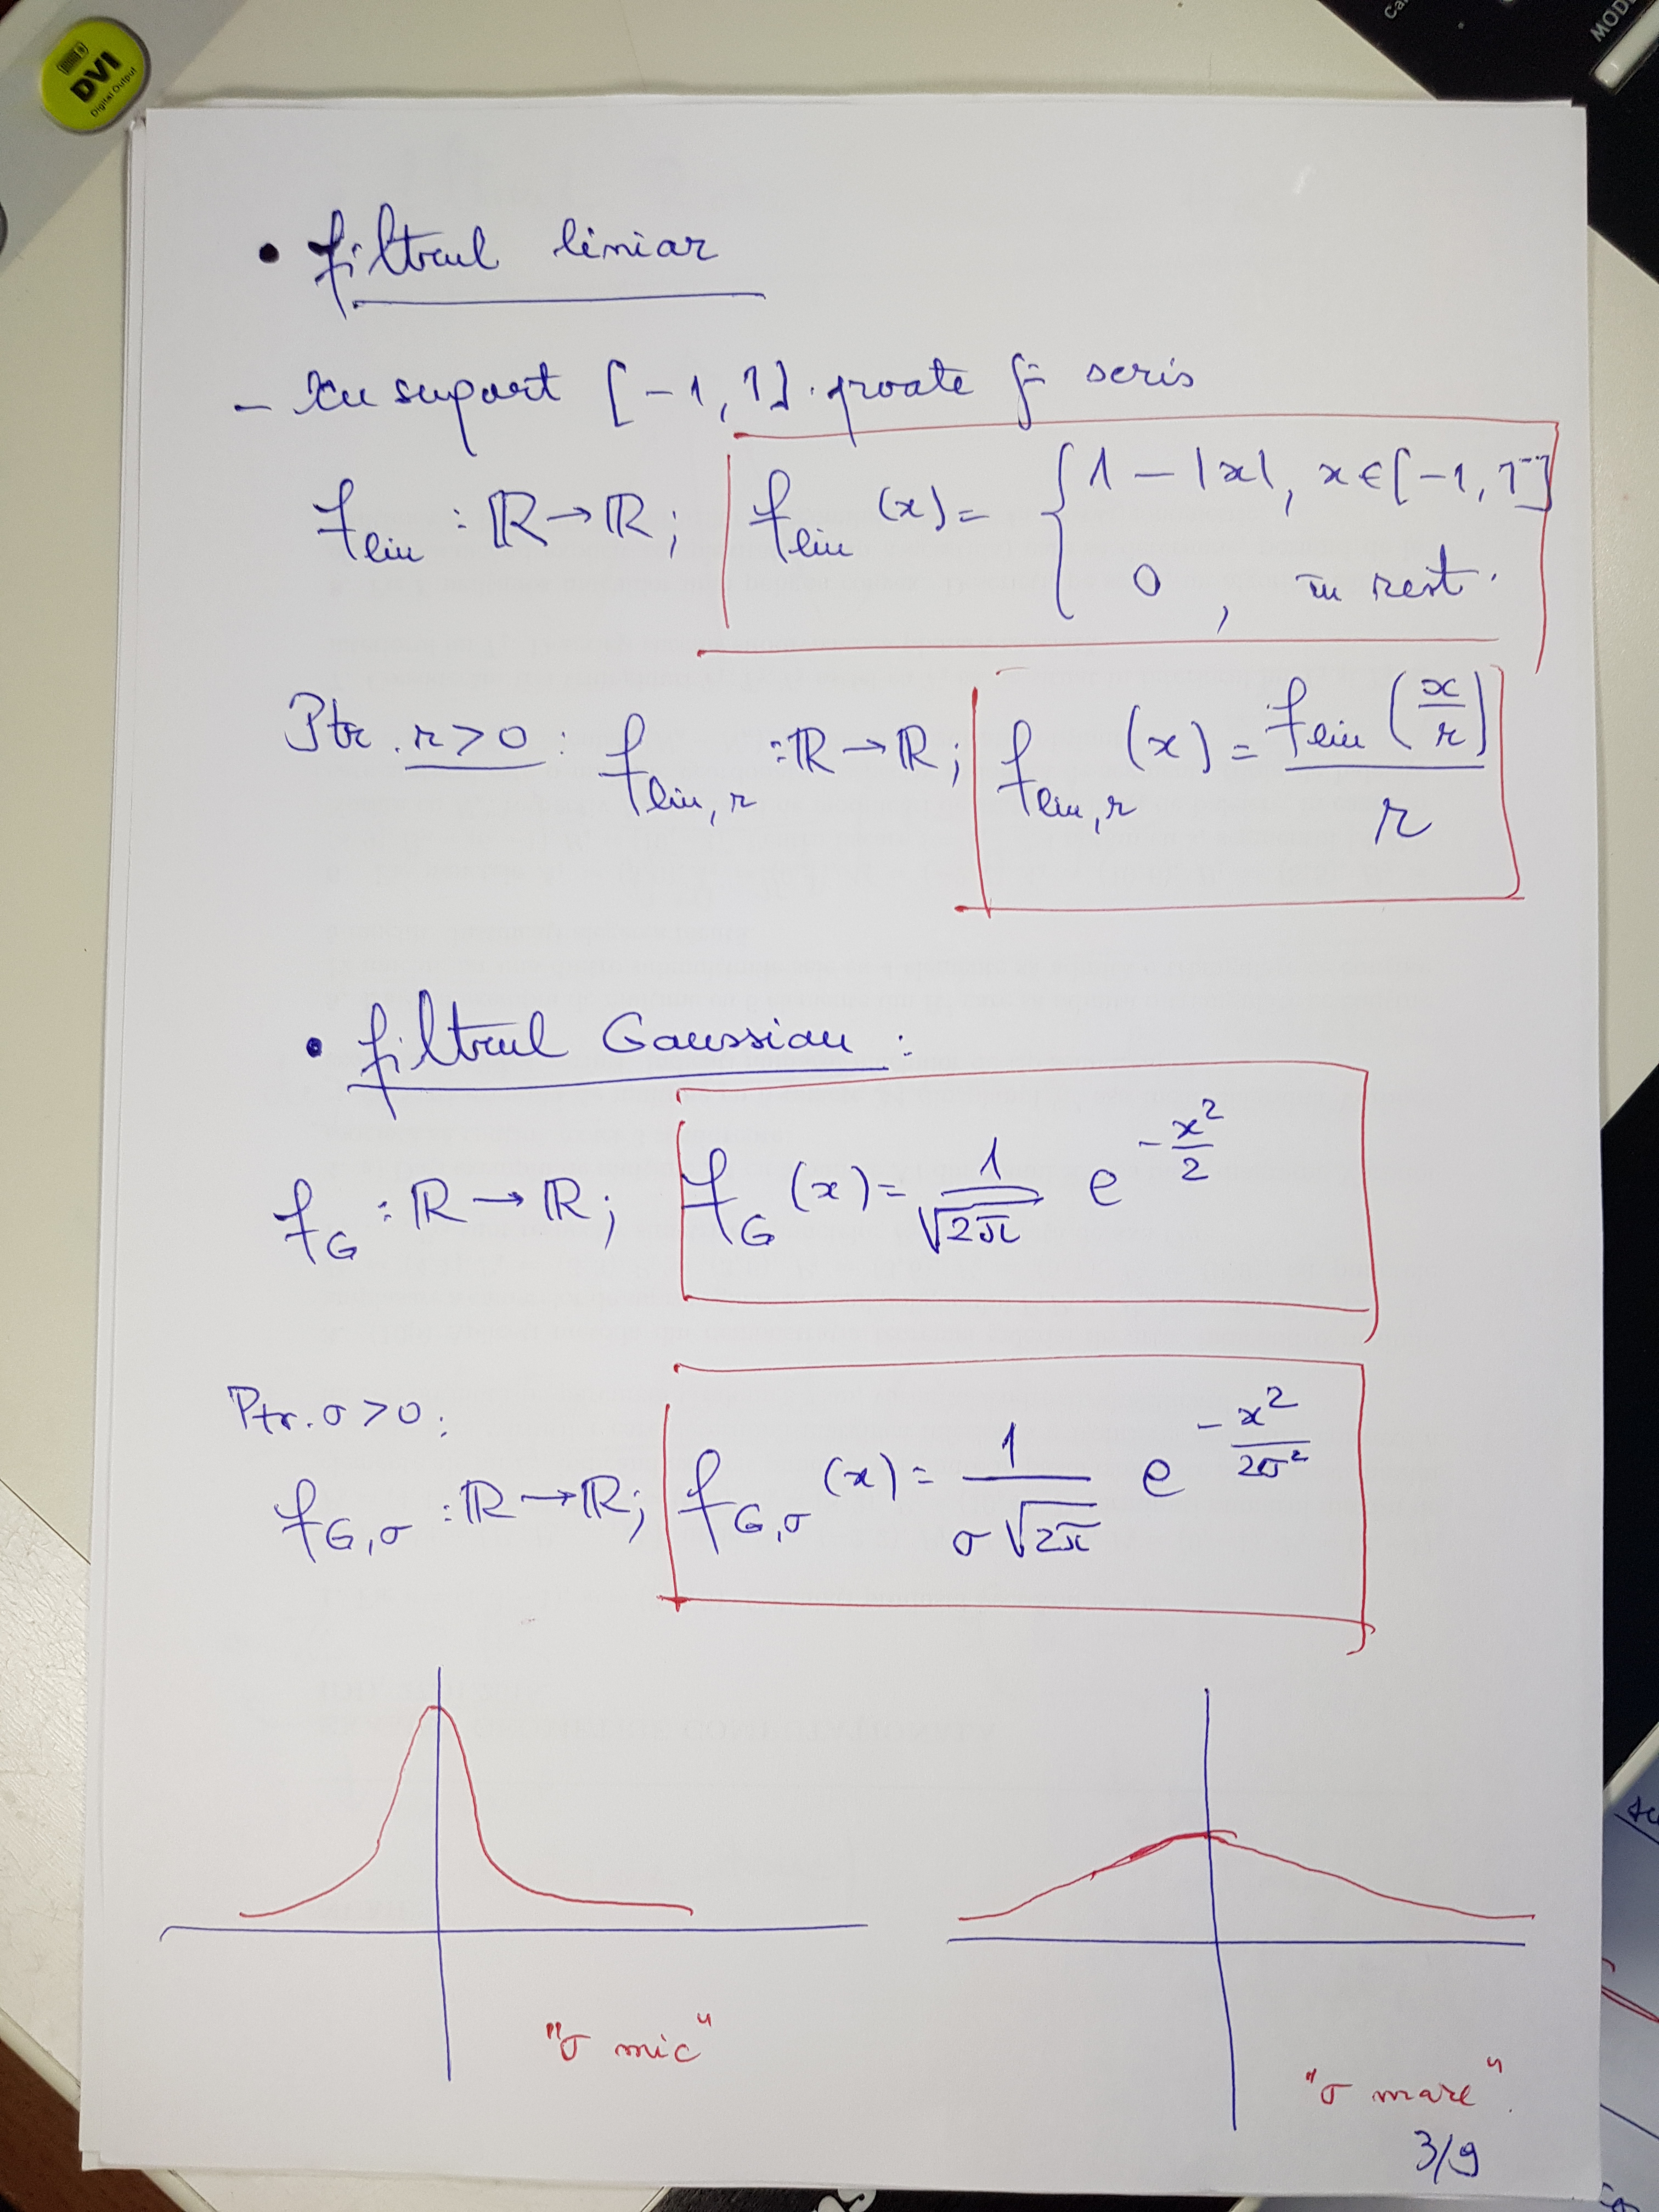 DVI
Digital Output
MODE
• filtrul liniar
– cu suport [-1, 1] poate fi scris
f_lin : ℝ → ℝ; f_lin (x) = { 1 – |x|, x ∈ [-1, 1]
0 , în rest.
Ptr. r > 0 : f_lin,r : ℝ → ℝ; f_lin,r (x) = f_lin (x/r) / r
• filtrul Gaussian :
f_G : ℝ → ℝ; f_G (x) = 1/√2π e^(-x²/2)
Ptr. σ > 0 :
f_G,σ : ℝ → ℝ; f_G,σ (x) = 1/(σ√2π) e^(-x²/2σ²)
"σ mic"
"σ mare".
3/9